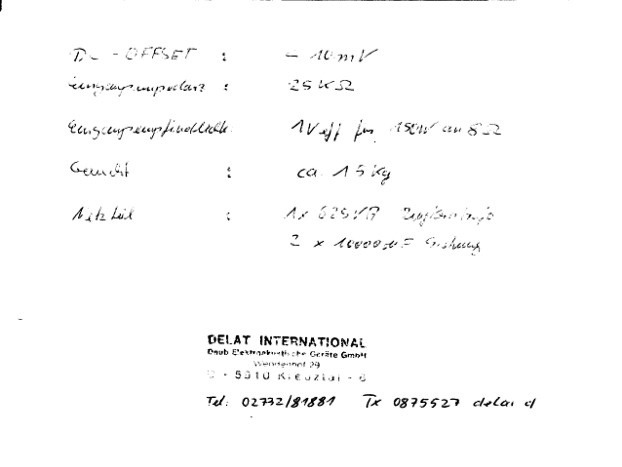 DC-OFFSET : - 10 mV
Eingangsimpedanz : 25 KΩ
Eingangsempfindlichk. 1 Veff für 150W an 8Ω
Gewicht : ca. 15 kg
Netzteil : 1 x 625VA
2 x 10000µF Siebung
DELAT INTERNATIONAL
Daub Elektroakustische Geräte GmbH
29
D - 5910 Kreuztal - 6
Tel: 02732/81881 Tx 0875527 delat d